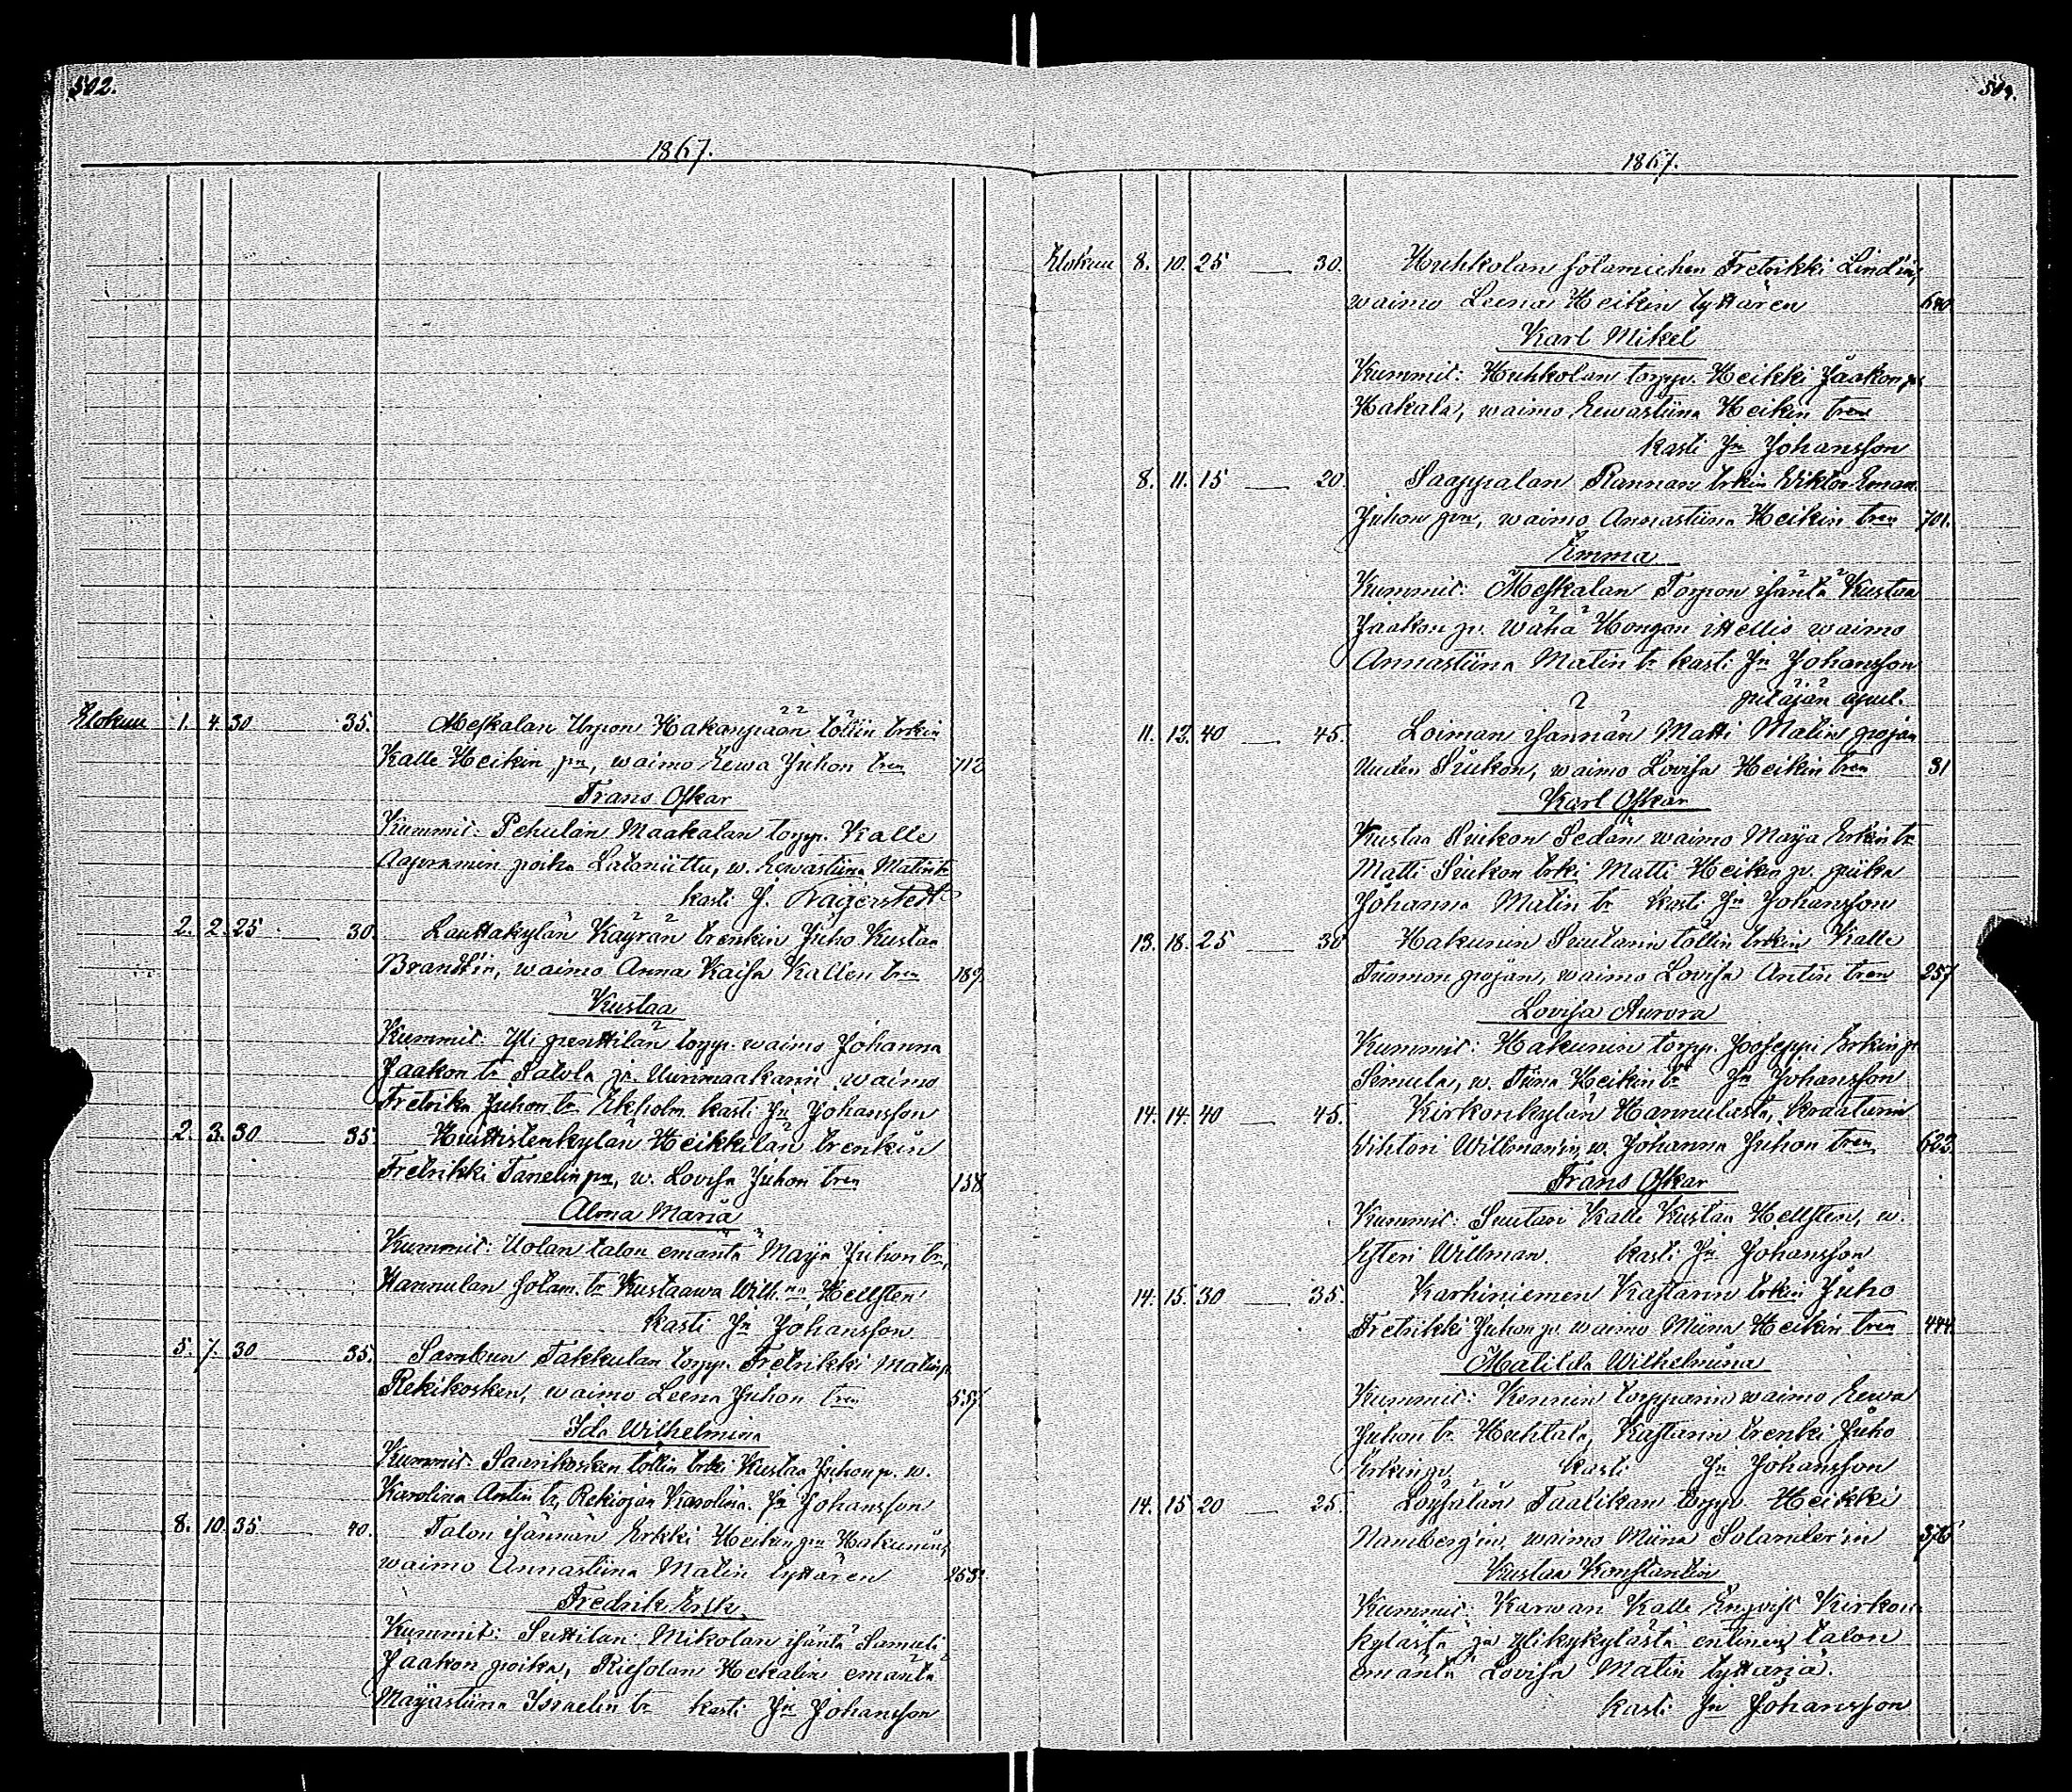 502.
1867.
Elokuu 1. 4. 30 35. Meskalan Urpon Hakanpään töllin trkin
Kalle Heikin pn, waimo Eewa Juhon tren 712
Frans Oskar
Kummit: Pehulan Maakalan torpp. Kalle
Aapramin poika Latoniittu, w. Eewastiina Matin tr
kasti J. Lagerstedt
2. 2. 25 30. Lauttakylän Käyrän trenkin Juho Kustaa
Brandt'in, waimo Anna Kaisa Kallen tren 189.
Kustaa
Kummit: Yli penttilän torpp. waimo Johanna
Jaakon tr Salola ja Uunimaakarin waimo
Fredrika Juhon tr Ekholm kasti Jn Johansson
2. 3. 30 35. Huittistenkylän Heikkilän trenkin
Fredrikki Tanelin pn, w. Lovisa Juhon tren 158
Alma Maria
Kummit: Uolan talon emäntä Maija Juhon tr,
Hannulan solam. tr Kustaawa Wilh.na Hellsten
Kasti Jn Johansson
5. 7. 30 35. Sambun Takkulan torpp. Fredrikki Matin p.
Rekikosken, waimo Leena Juhon tren 557
Ida Wilhelmina
Kummit: Saarikosken töllin trki Kustaa Juhon p. w.
Karolina Antin tr, Rekiojan Karolina. Jn Johansson
8. 10. 35 40. Talon isännän Erkki Heikin pn Hakunin,
waimo Annastiina Matin tyttären 253.
Fredrik Erik
Kummit: Suttilan Mikolan isäntä Samuli
Jaakon poika, Riesolan Hekalin emäntä
Maijastiina Israelin tr kasti Jn Johansson
1867.
Elokuu 8. 10. 25 30. Huhkolan solamiehen Fredrikki Lind'in,
waimo Leena Heikin tyttären 640
Karl Mikel
Kummit: Huhkolan torpp. Heikki Jaakon p.
Hakala, waimo Eewastiina Heikin tren
kasti Jn Johansson
8. 11. 15 20. Saappalan Rannan trkin Wiktor Eman.
Juhon pn, waimo Annastiina Heikin tren 701.
Emma
Kummit: Meskalan Torpon isäntä Kustaa
Jaakon p. Wähä Hongon ittellis waimo
Annastiina Matin tr kasti Jn Johansson
pitäjän apul.
11. 12. 40 45. Loiman isännän Matti Matin pojan
Uuden Siukon, waimo Lovisa Heikin tren 31
Karl Oskar
Kustaa Siukon Sedän waimo Maija Erkin tr
Matti Siukon trki Matti Heikin p. piika
Johanna Matin tr kasti Jn Johansson
13. 18. 25 30 Hakunin Suutarin töllin trkin Kalle
Tuomon pojan, waimo Lovisa Antin tren 257
Lovisa Aurora
Kummit: Hakunin torpp. Jooseppi Erkin p.
Simula, w. Stina Heikin tr Jn Johansson
14. 14. 40 45. Kirkonkylän Hannulasta, kraatarin
Vihtori Willman'in, w. Johanna Juhon tren 622
Frans Oskar
Kummit: Suutari Kalle Kustaa Hellsten, w.
Esteri Willman. Kasti Jn Johansson
14. 15. 30 35. Karhiniemen Kastarin trkin Juho
Fredrikki Juhon p. waimo Miina Heikin tren 444.
Matilda Wilhelmiina
Kummit: Kennin torpparin waimo Eewa
Juhon tr Huhtala, Kastarin trenki Juho
Erkin p. kasti Jn Johansson
14. 15 20 25. Loysälän Taalikan torpp. Heikki
Namberg'in, waimo Miina Solander'in 376
Kustaa Konstantin
Kummit: Karwari Kalle Enqvist Kirkon-
kylästä ja ylikykylästä entinen talon
emäntä Lovisa Matin tyttärjä.
kasti Jn Johansson